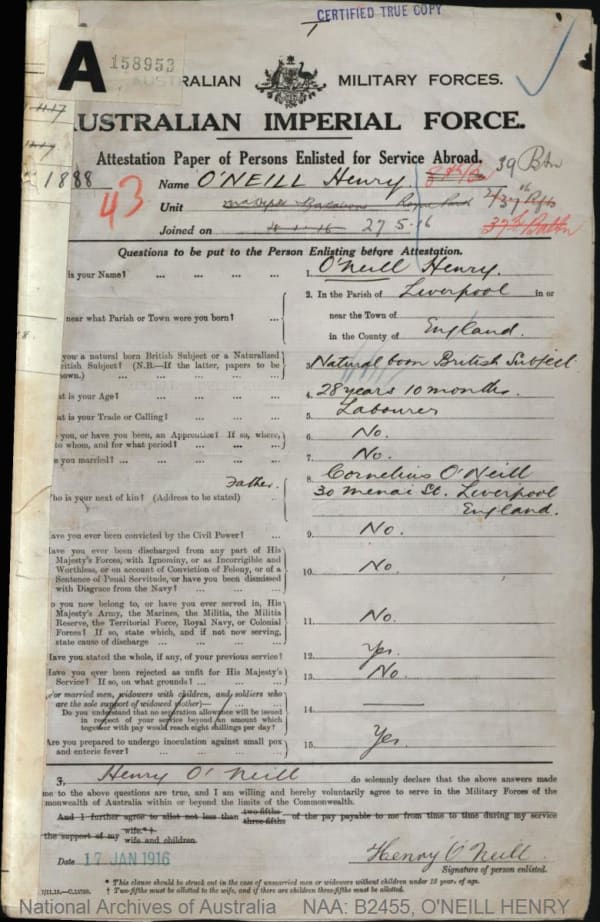 CERTIFIED TRUE COPY
A 158953
AUSTRALIAN MILITARY FORCES.
AUSTRALIAN IMPERIAL FORCE.
Attestation Paper of Persons Enlisted for Service Abroad.
39 Btn
1888
43
Name O'NEILL Henry
Unit
37th Battn
Joined on 27 5.16
Questions to be put to the Person Enlisting before Attestation.
is your Name? ... ... ... ... 1. O'Neill Henry.
2. In the Parish of Liverpool in or
near what Parish or Town were you born? ... near the Town of
in the County of England.
you a natural born British Subject or a Naturalized
ritish Subject? (N.B.—If the latter, papers to be
own.) ... ... ... ... 3. Natural born British Subject
at is your Age? ... ... ... ... 4. 28 years 10 months.
at is your Trade or Calling? ... ... ... 5. Labourer
you, or have you been, an Apprentice? If so, where,
to whom, and for what period? ... ... ... 6. No.
e you married? ... ... ... ... 7. No.
Father.
ho is your next of kin? (Address to be stated) 8. Cornelius O'Neill
30 Menai St. Liverpool
England.
ave you ever been convicted by the Civil Power? ... 9. No.
ave you ever been discharged from any part of His
Majesty's Forces, with Ignominy, or as Incorrigible and
Worthless, or on account of Conviction of Felony, or of a
Sentence of Penal Servitude, or have you been dismissed
with Disgrace from the Navy? ... ... ... 10. No.
o you now belong to, or have you ever served in, His
Majesty's Army, the Marines, the Militia, the Militia
Reserve, the Territorial Force, Royal Navy, or Colonial
Forces? If so, state which, and if not now serving,
state cause of discharge ... ... ... 11. No.
ave you stated the whole, if any, of your previous service? 12. Yes.
ave you ever been rejected as unfit for His Majesty's
Service? If so, on what grounds? ... ... ... 13. No.
For married men, widowers with children, and soldiers who
are the sole support of widowed mother)—
Do you understand that no separation allowance will be issued
in respect of your service beyond an amount which
together with pay would reach eight shillings per day? 14.
Are you prepared to undergo inoculation against small pox
and enteric fever? ... ... ... ... 15. Yes.
I, Henry O'Neill do solemnly declare that the above answers made
me to the above questions are true, and I am willing and hereby voluntarily agree to serve in the Military Forces of the
monwealth of Australia within or beyond the limits of the Commonwealth.
And I further agree to allot not less than two-fifths three-fifths of the pay payable to me from time to time during my service
the support of my wife.*† wife and children.
Date 17 JAN 1916 Henry O'Neill.
Signature of person enlisted.
* This clause should be struck out in the case of unmarried men or widowers without children under 18 years of age.
† Two-fifths must be allotted to the wife, and if there are children three-fifths must be allotted.
National Archives of Australia NAA: B2455, O'NEILL HENRY